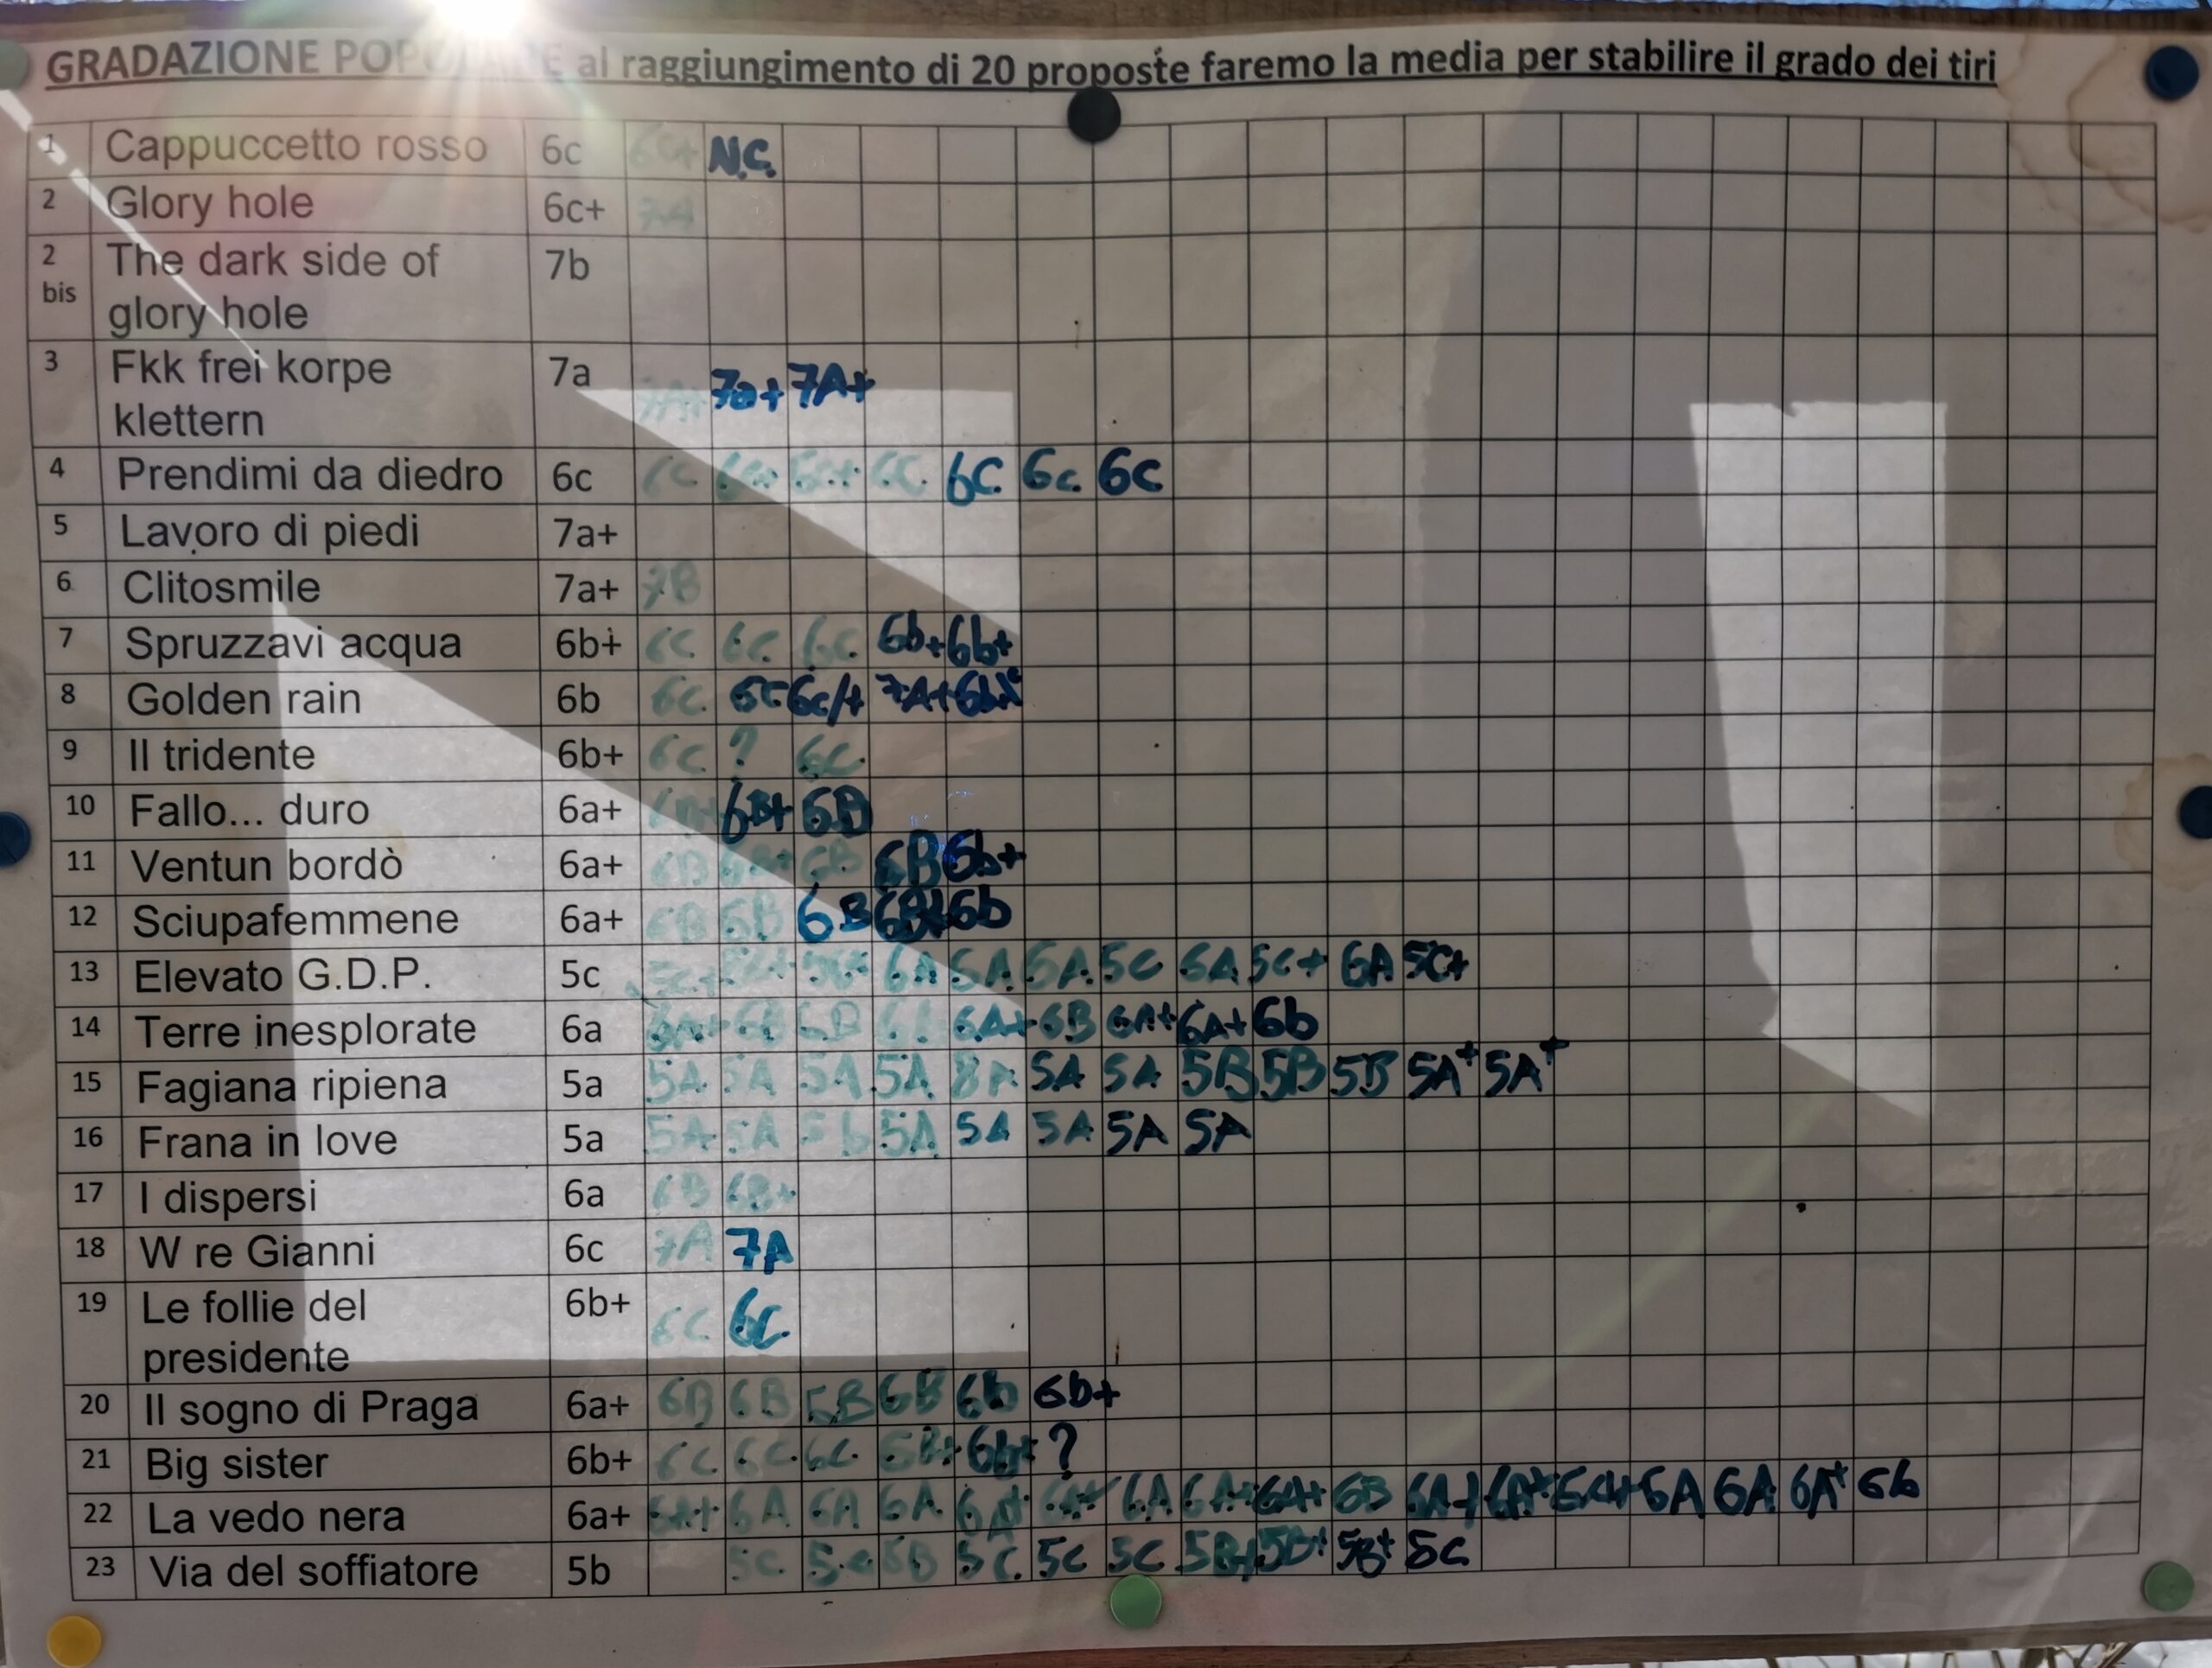 GRADAZIONE al raggiungimento di 20 proposte faremo la media per stabilire il grado dei tiri
1 Cappuccetto rosso 6c 6c+ N.C.
2 Glory hole 6c+ 7A
2 bis The dark side of glory hole 7b
3 Fkk frei korpe klettern 7a 7A+ 7a+ 7A+
4 Prendimi da diedro 6c 6C 6c+ 6C 6C 6c 6C
5 Lavoro di piedi 7a+
6 Clitosmile 7a+ 7B
7 Spruzzavi acqua 6b+ 6C 6C 6C 6b+ 6b+
8 Golden rain 6b 6C 6C 6c/+ 7A+
9 Il tridente 6b+ 6C ? 6C
10 Fallo... duro 6a+ 6B+ 6B
11 Ventun bordò 6a+ 6B 6B+ 6B 6B 6b+
12 Sciupafemmene 6a+ 6B 6B 6B 6b
13 Elevato G.D.P. 5c 5c+ 6A 5A 6A 5C 6A 5c+ 6A 5C+
14 Terre inesplorate 6a 6A+ 6B 6B 6A+ 6B 6A+ 6A+ 6b
15 Fagiana ripiena 5a 5A 5A 5A 5A 8A 5A 5A 5B 5B 5B 5A+ 5A+
16 Frana in love 5a 5A 5A 5b 5A 5A 5A 5A 5A
17 I dispersi 6a 6B 6B+
18 W re Gianni 6c 7A 7A
19 Le follie del presidente 6b+ 6C 6C
20 Il sogno di Praga 6a+ 6B 6B 6B 6b 6b+
21 Big sister 6b+ 6C 6C 6C 6B+ 6b+ ?
22 La vedo nera 6a+ 6A+ 6A 6A 6A 6A+ 6A+ 6A 6A+ 6A+ 6B 6A+ 6A+ 6A 6A 6A+ 6b
23 Via del soffiatore 5b 5C 5C 5B 5C 5C 5C 5B+ 5B+ 5B+ 5C